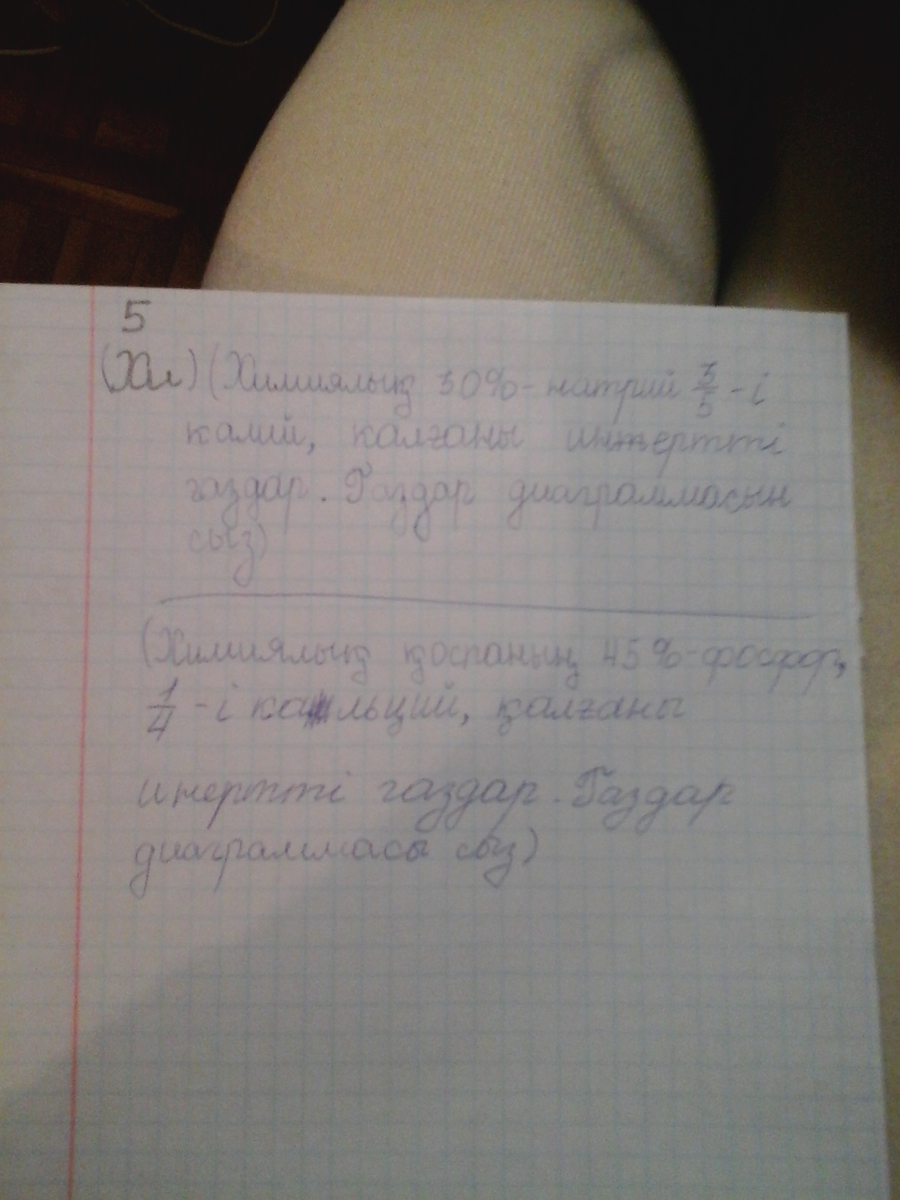 5
(Хим) (Химиялық 30%-натрий 3/5-і
калий, қалғаны инертті
газдар. Газдар диаграммасын
сыз)
(Химиялық қоспаның 45%-фосфор,
1/4-і кальций, қалғаны
инертті газдар. Газдар
диаграммасы сыз)